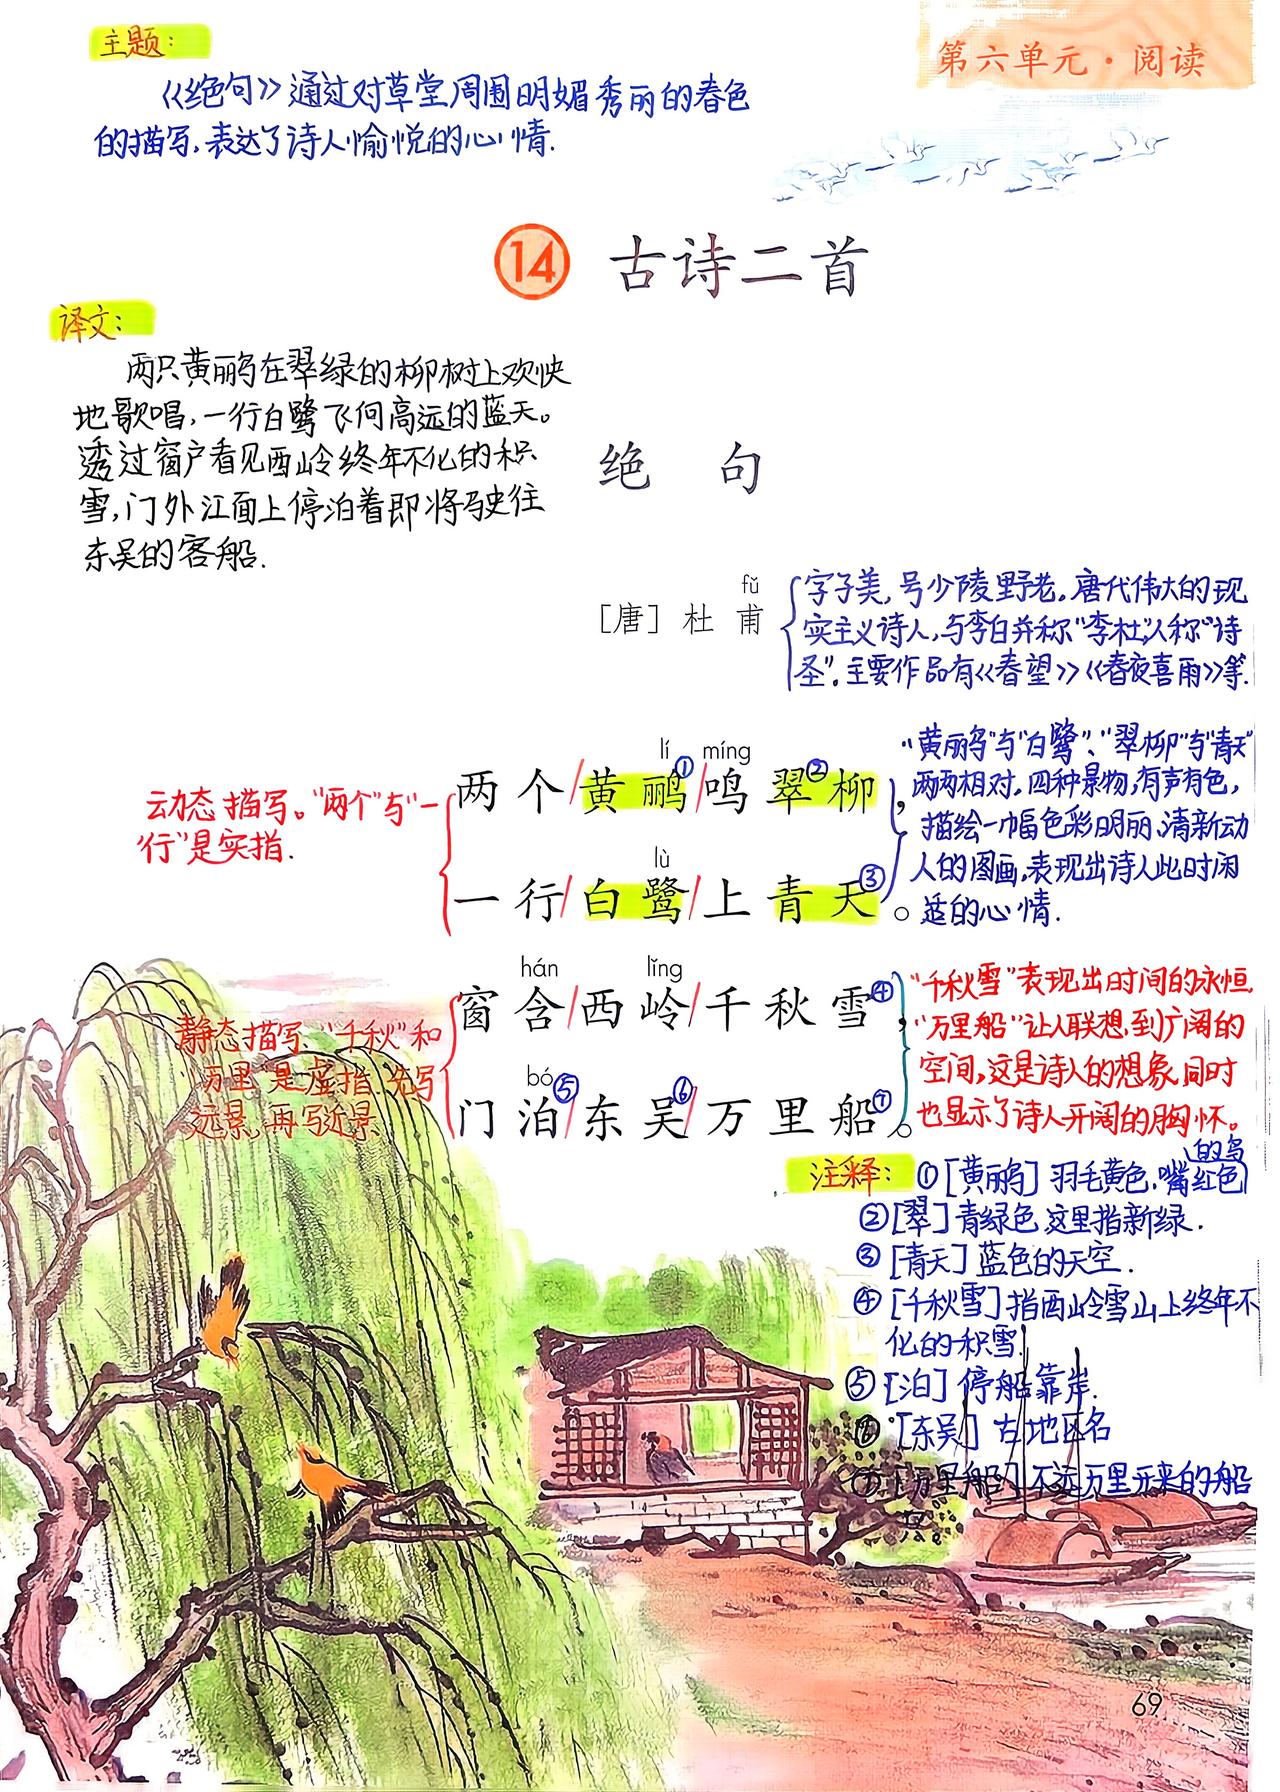 主题：
第六单元·阅读
《绝句》通过对草堂周围明媚秀丽的春色
的描写，表达了诗人愉悦的心情.
14 古诗二首
译文：
两只黄鹂在翠绿的柳树上欢快
地歌唱，一行白鹭飞向高远的蓝天。
透过窗户看见西岭终年不化的积
雪，门外江面上停泊着即将驶往
东吴的客船.
绝 句
fǔ
［唐］杜 甫
字子美，号少陵野老。唐代伟大的现
实主义诗人，与李白并称“李杜”，人称“诗
圣”。主要作品有《春望》《春夜喜雨》等.
lí míng
两个/黄鹂①/鸣翠②柳，
lù
一行/白鹭/上青天③。
动态描写。“两个”与“一
行”是实指.
“黄鹂”与“白鹭”、“翠柳”与“青天”
两两相对。四种景物，有声有色，
描绘一幅色彩明丽、清新动
人的图画，表现出诗人此时闲
适的心情.
hán lǐng
窗含/西岭/千秋雪④，
bó
门泊⑤/东吴⑥/万里船⑦。
静态描写、“千秋”和
“万里”是虚指.先写
远景，再写近景
“千秋雪”表现出时间的永恒
“万里船”让人联想到广阔的
空间，这是诗人的想象，同时
也显示了诗人开阔的胸怀。
注释：①[黄鹂] 羽毛黄色.嘴红色的鸟
②[翠] 青绿色 这里指新绿.
③[青天] 蓝色的天空.
④[千秋雪]指西岭雪山上终年不
化的积雪.
⑤[泊] 停船靠岸.
⑥[东吴] 古地区名
⑦[万里船]不远万里开来的船
只.
69